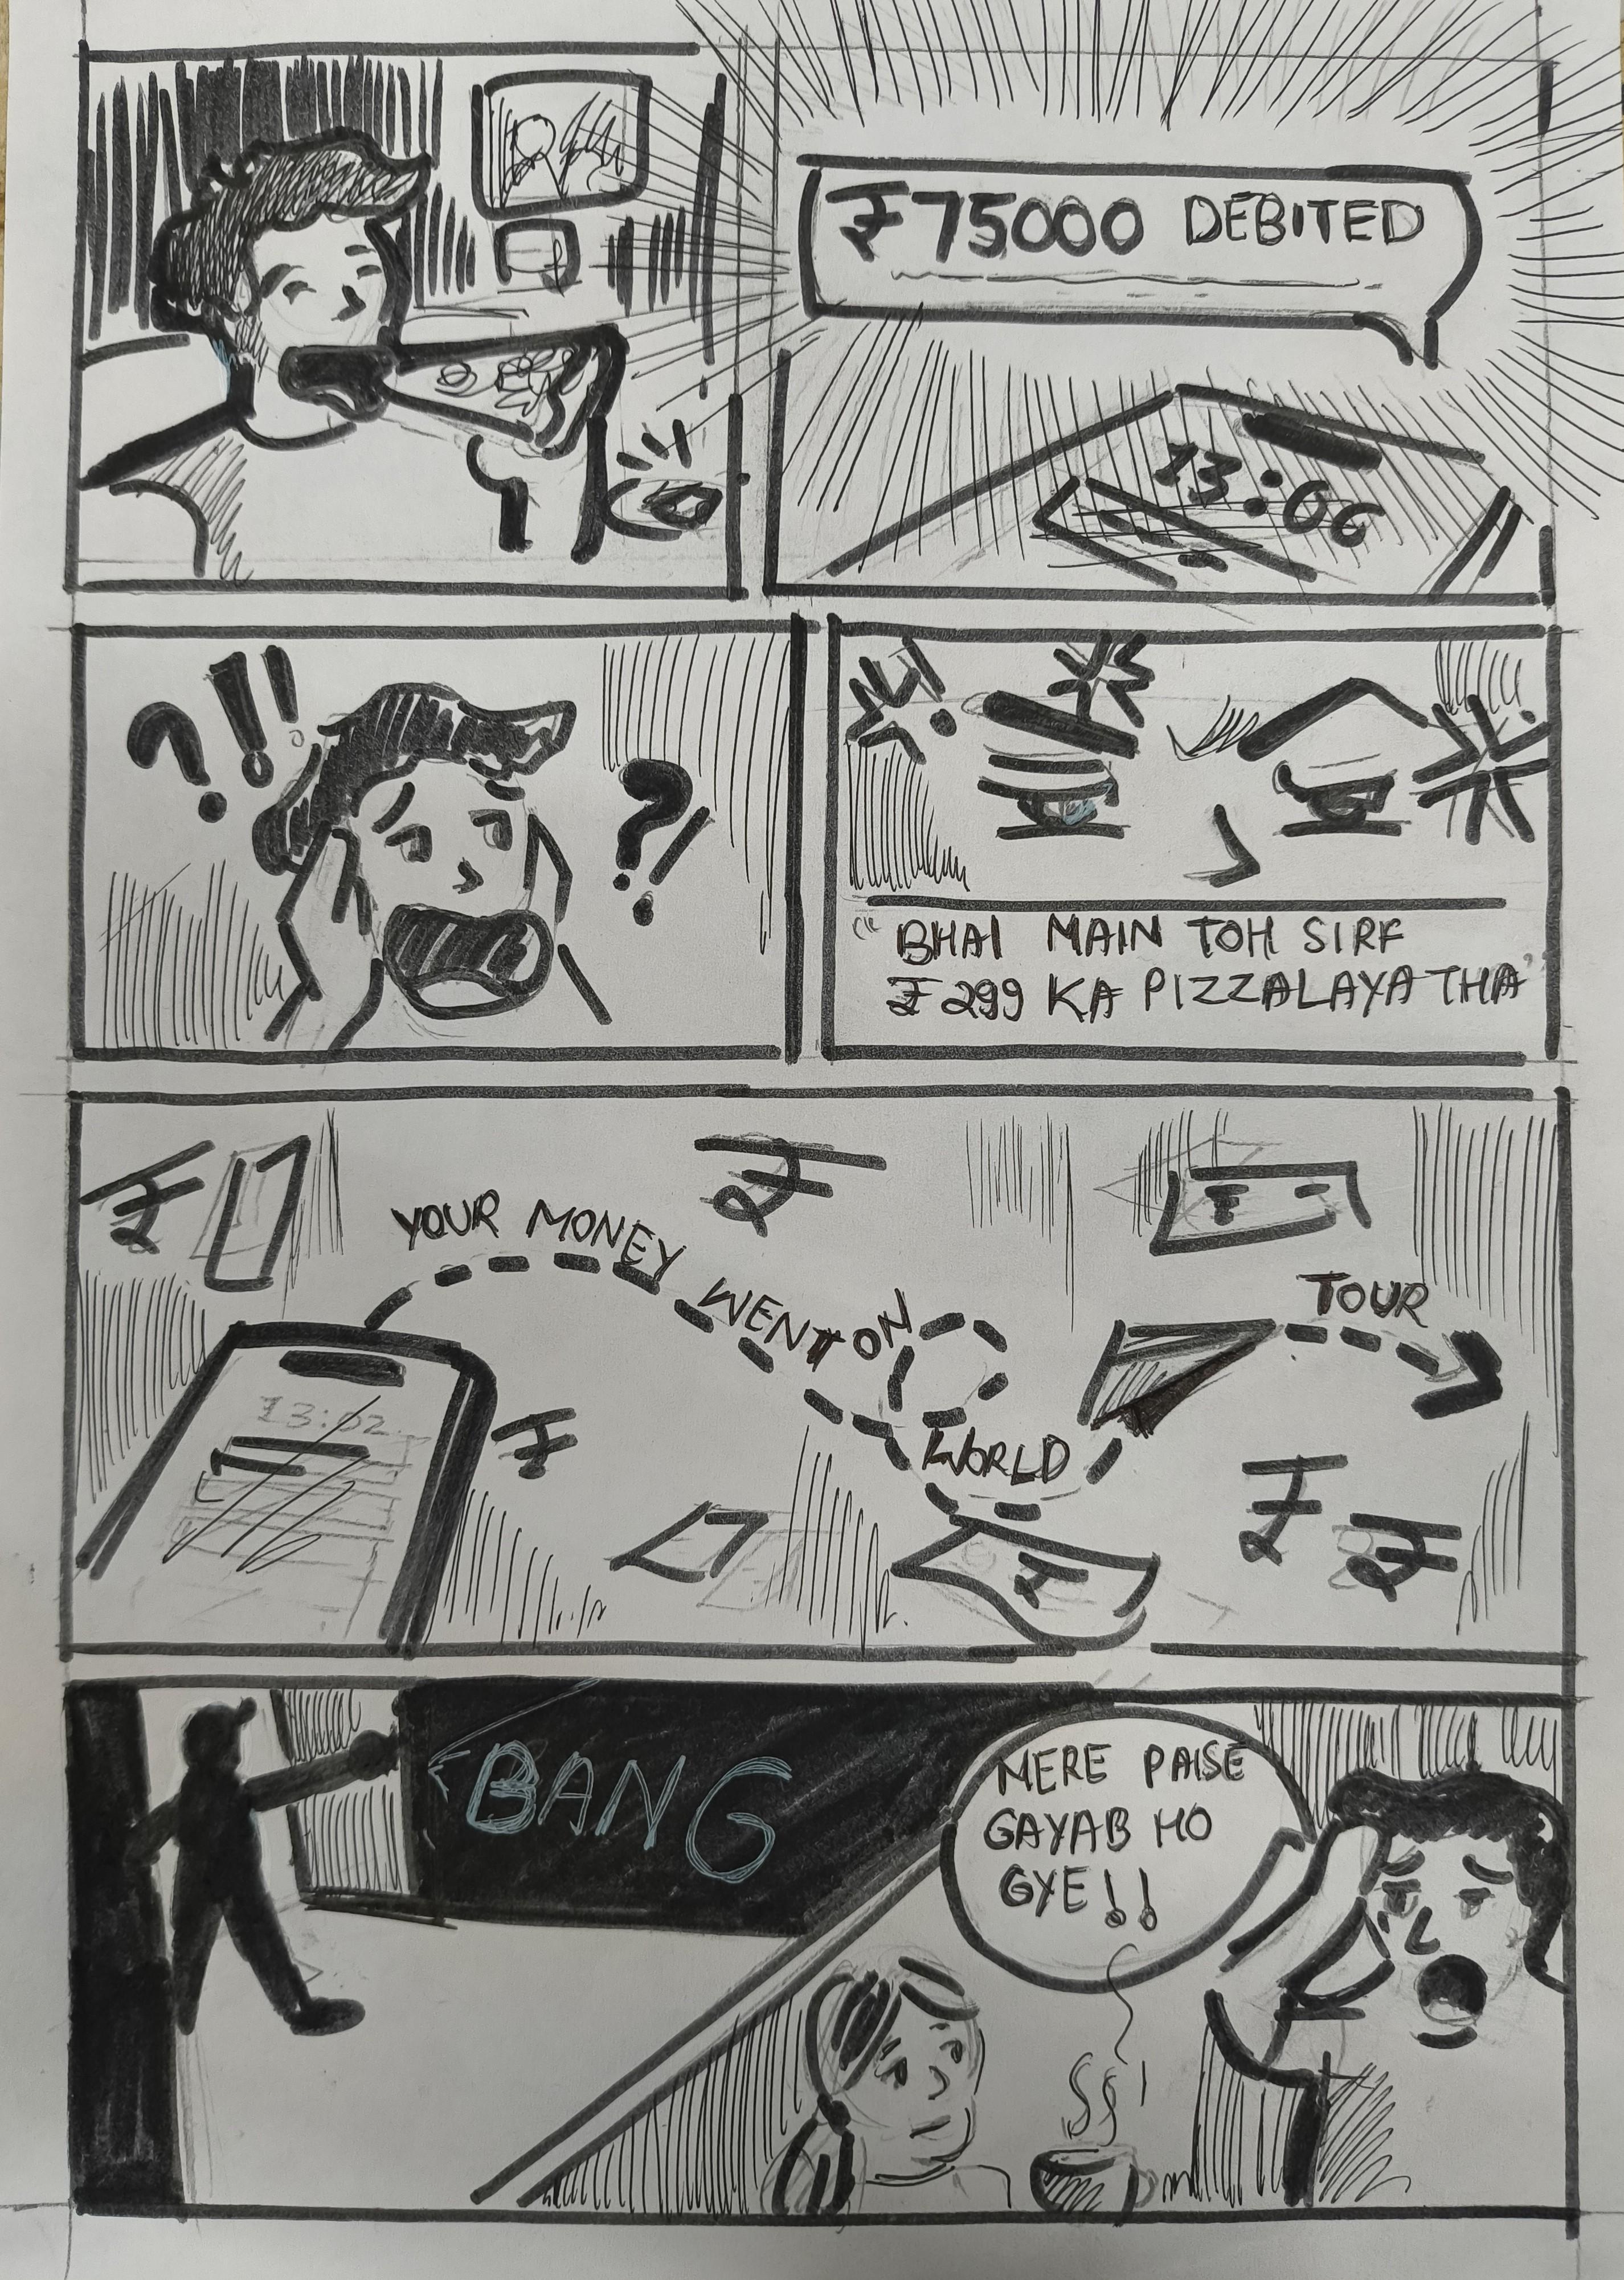 ₹75000 DEBITED
?!!
?!
!
"BHAI MAIN TOH SIRF
₹299 KA PIZZA LAYA THA"
₹
₹
YOUR MONEY WENT ON
WORLD
TOUR
13:02
₹
₹
₹
₹
BANG
MERE PAISE
GAYAB HO
GYE!!